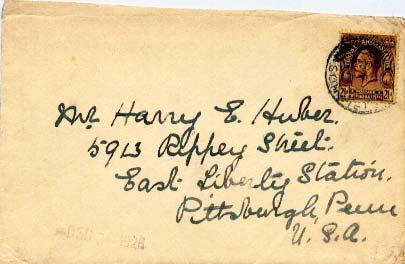 Mr. Harry E. Huber.
5913 Rippey Street.
East Liberty Station.
Pittsburgh, Penn
U. S. A.
DEC 1926